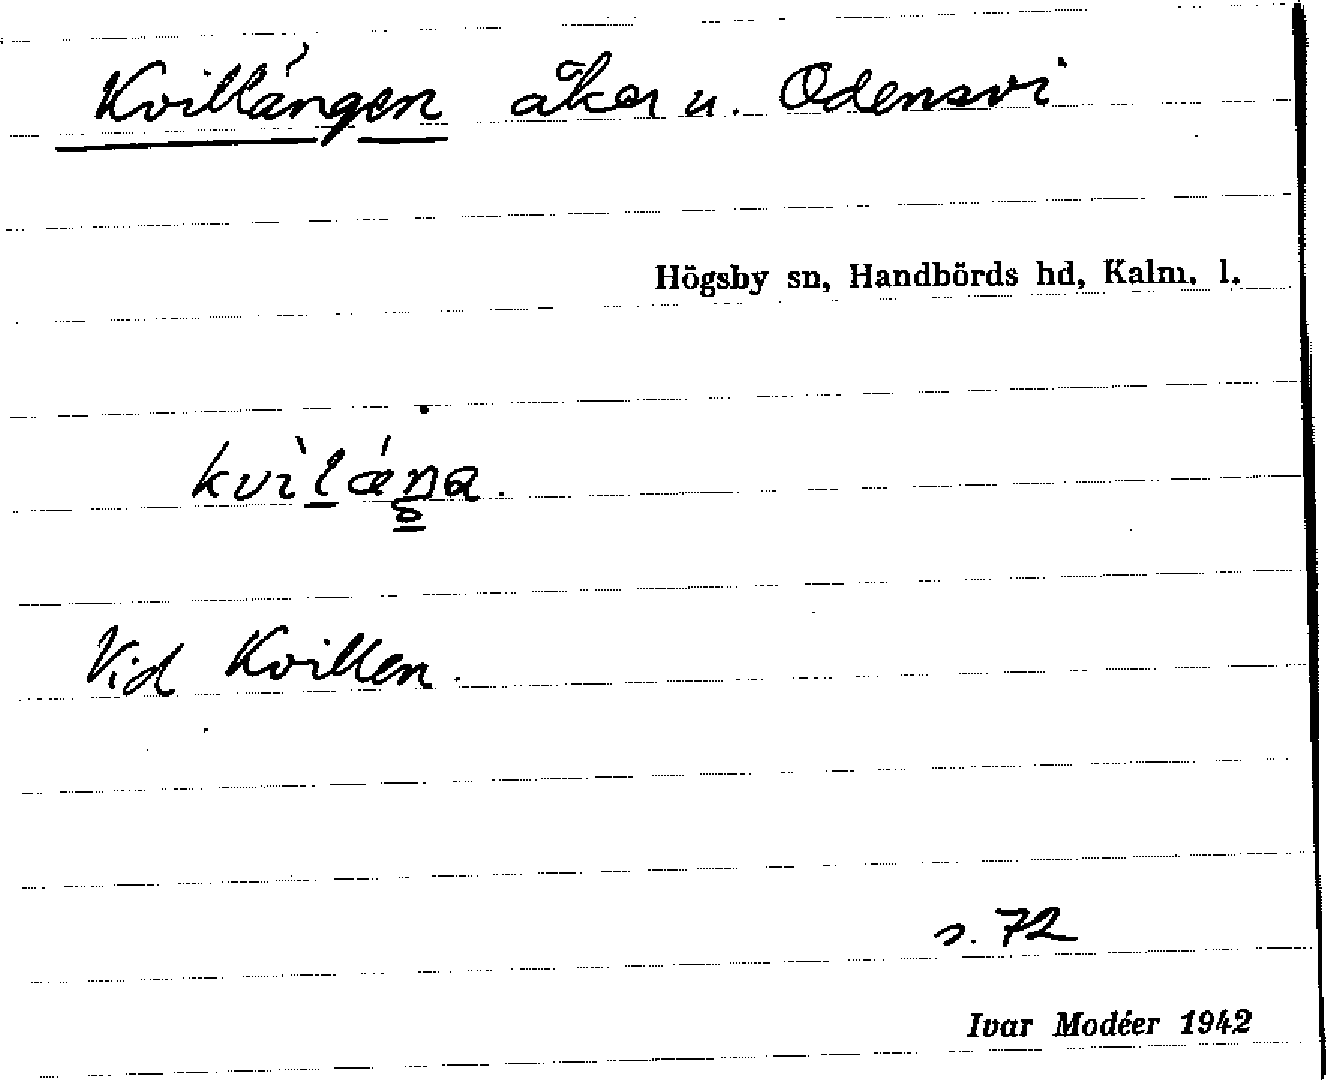 Kvillängen åker u. Odensvi
Högsby sn, Handbörds hd, Kalm. l.
Vid Kvillen.
s. 72
Ivar Modéer 1942